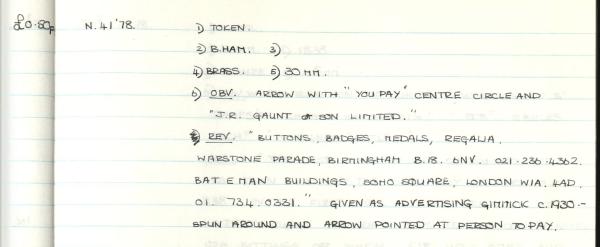 £0.80p N.41'78. 1) TOKEN.
2) B.HAM. 3)
4) BRASS. 5) 30 MM.
6) OBV. ARROW WITH "YOU PAY" CENTRE CIRCLE AND
"J.R. GAUNT & SON LIMITED."
REV. "BUTTONS, BADGES, MEDALS, REGALIA.
WARSTONE PARADE, BIRMINGHAM B.18. 6NV. 021-236-4362.
BATEMAN BUILDINGS, SOHO SQUARE, LONDON W1A. 4AD.
01. 734.0331." GIVEN AS ADVERTISING GIMMICK C.1930.-
SPUN AROUND AND ARROW POINTED AT PERSON TO PAY.